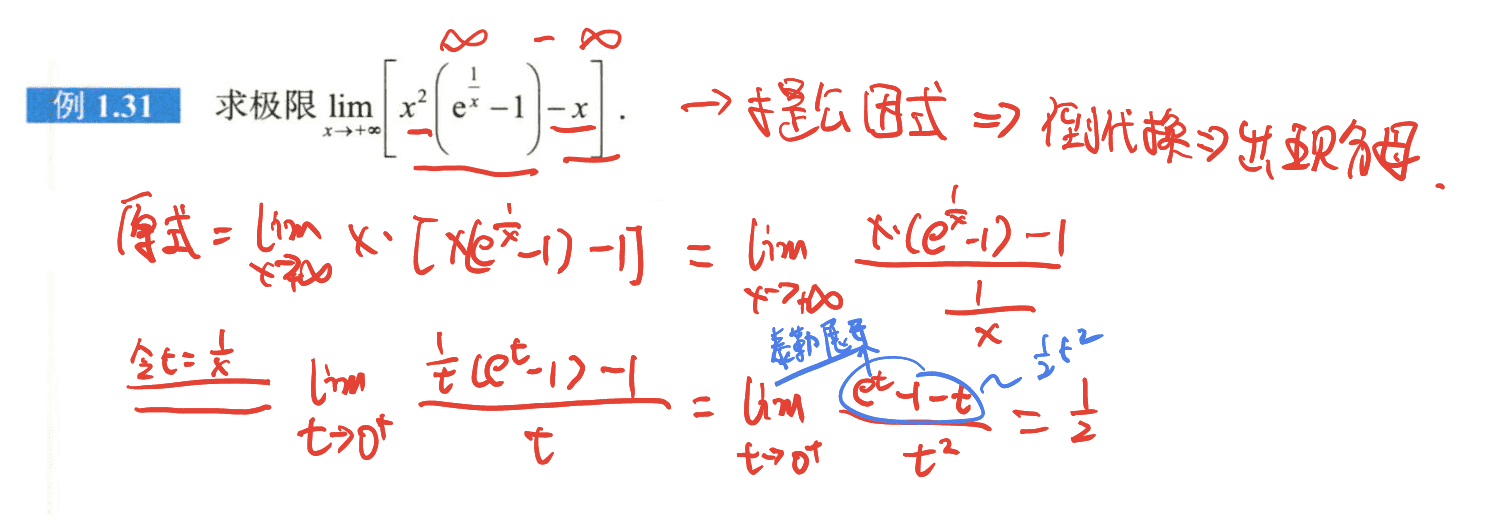 ∞ - ∞
例 1.31 求极限 lim_{x→+∞} [x²(e^{1/x} - 1) - x]. → 提公因式 ⇒ 倒代换 ⇒ 出现分母.
原式 = lim_{x→+∞} x·[x(e^{1/x}-1)-1] = lim_{x→+∞} (x·(e^{1/x}-1)-1)/(1/x)
泰勒展开
令t=1/x lim_{t→0⁺} (1/t(e^t-1)-1)/t = lim_{t→0⁺} (e^t-1-t)/t² = 1/2
~ 1/2 t²